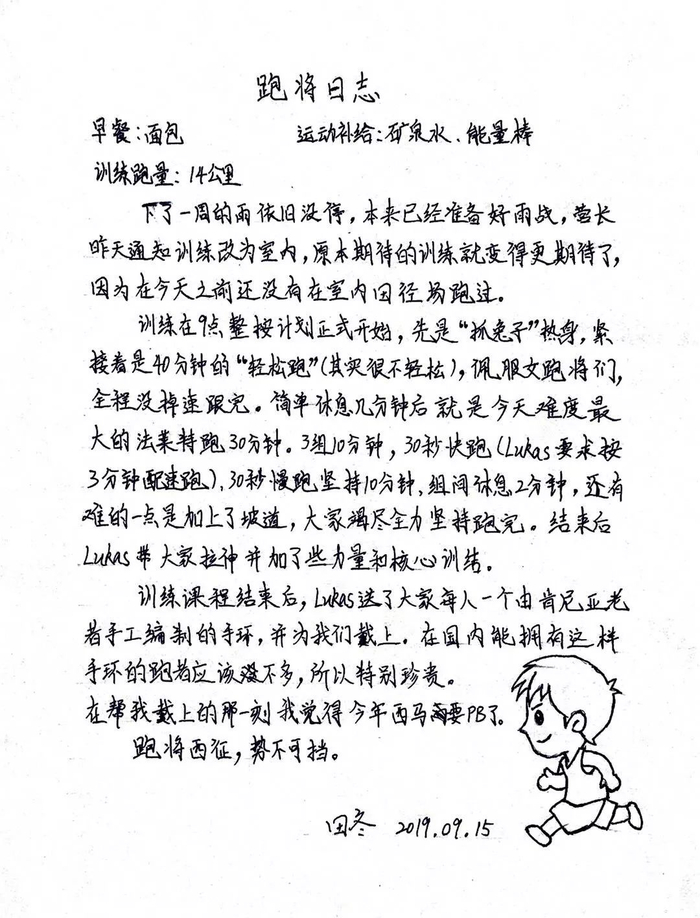 跑将日志
早餐:面包 运动补给:矿泉水、能量棒
训练跑量:14公里
下了一周的雨依旧没停,本来已经准备好雨战,营长
昨天通知训练改为室内,原本期待的训练就变得更期待了,
因为在今天之前还没有在室内田径场跑过。
训练在9点整按计划正式开始,先是“抓兔子”热身,紧
接着是40分钟的“轻松跑”(其实很不轻松),佩服女跑将们,
全程没掉速跟完。简单休息几分钟后就是今天难度最
大的法莱特跑30分钟。3组10分钟,30秒快跑(Lukas要求按
3分钟配速跑)、30秒慢跑坚持10分钟,组间休息2分钟,还有
难的一点是加上了坡道,大家竭尽全力坚持跑完。结束后
Lukas带大家拉伸并加了些力量和核心训练。
训练课程结束后,Lukas送了大家每人一个由肯尼亚老
者手工编制的手环,并为我们戴上。在国内能拥有这样
手环的跑者应该不多,所以特别珍贵。
在帮我戴上的那一刻我觉得今年西马需要PB了。
跑将西征,势不可挡。
田冬 2019.09.15